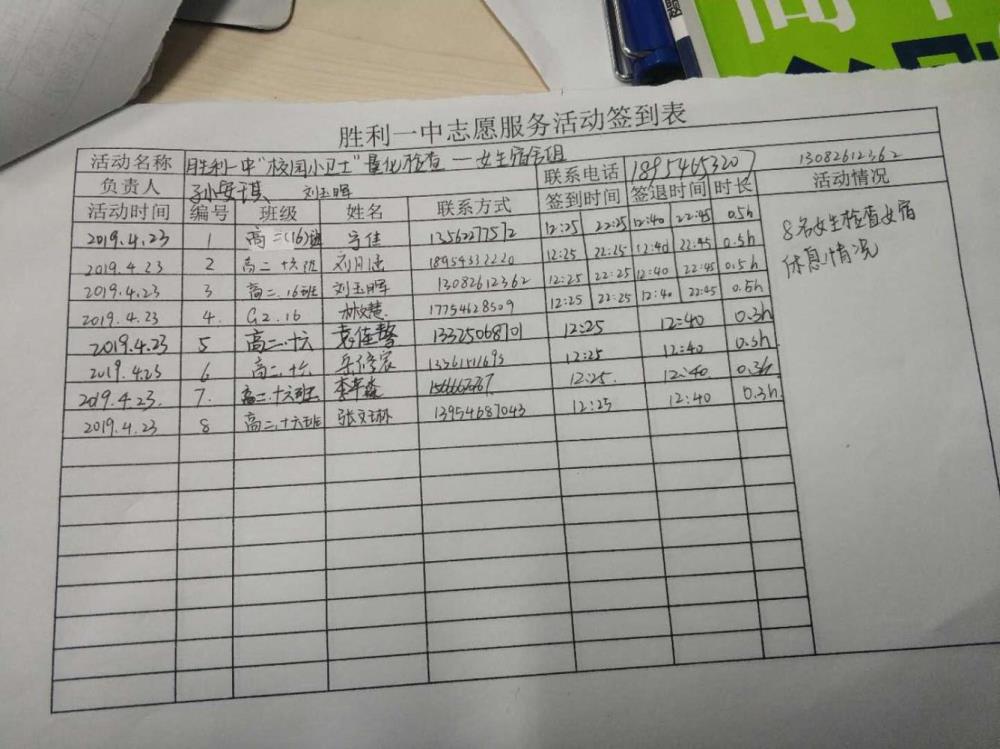 胜利一中志愿服务活动签到表
活动名称 胜利一中“校园小卫士”量化检查—女生宿舍组 联系电话 18954653207 13082612362
负责人 孙安琪、 刘玉晖 签到时间 签退时间 时长 活动情况
活动时间 编号 班级 姓名 联系方式
2019.4.23 1 高二(16)班 宁佳 13562277572 12:25 22:25 12:40 22:45 0.5h
2019.4.23 2 高二十六班 18954332220 12:25 22:25 12:40 22:45 0.5h
2019.4.23 3 高二.16班 刘玉晖 13082612362 12:25 22:25 12:40 22:45 0.5h
2019.4.23 4. G2.16 林文慧 17754628509 12:25 22:25 12:40 22:45 0.5h
2019.4.23 5 高二.十六 13325068701 12:25 12:40 0.3h
2019.4.23 6 高二.十六 12:25 12:40 0.3h
2019.4.23. 7. 高二.十六班 12:25. 12:40 0.3h
2019.4.23 8 高二.十六班 张文琳 13954687043 12:25 12:40 0.3h
8名女生检查女宿
休息情况